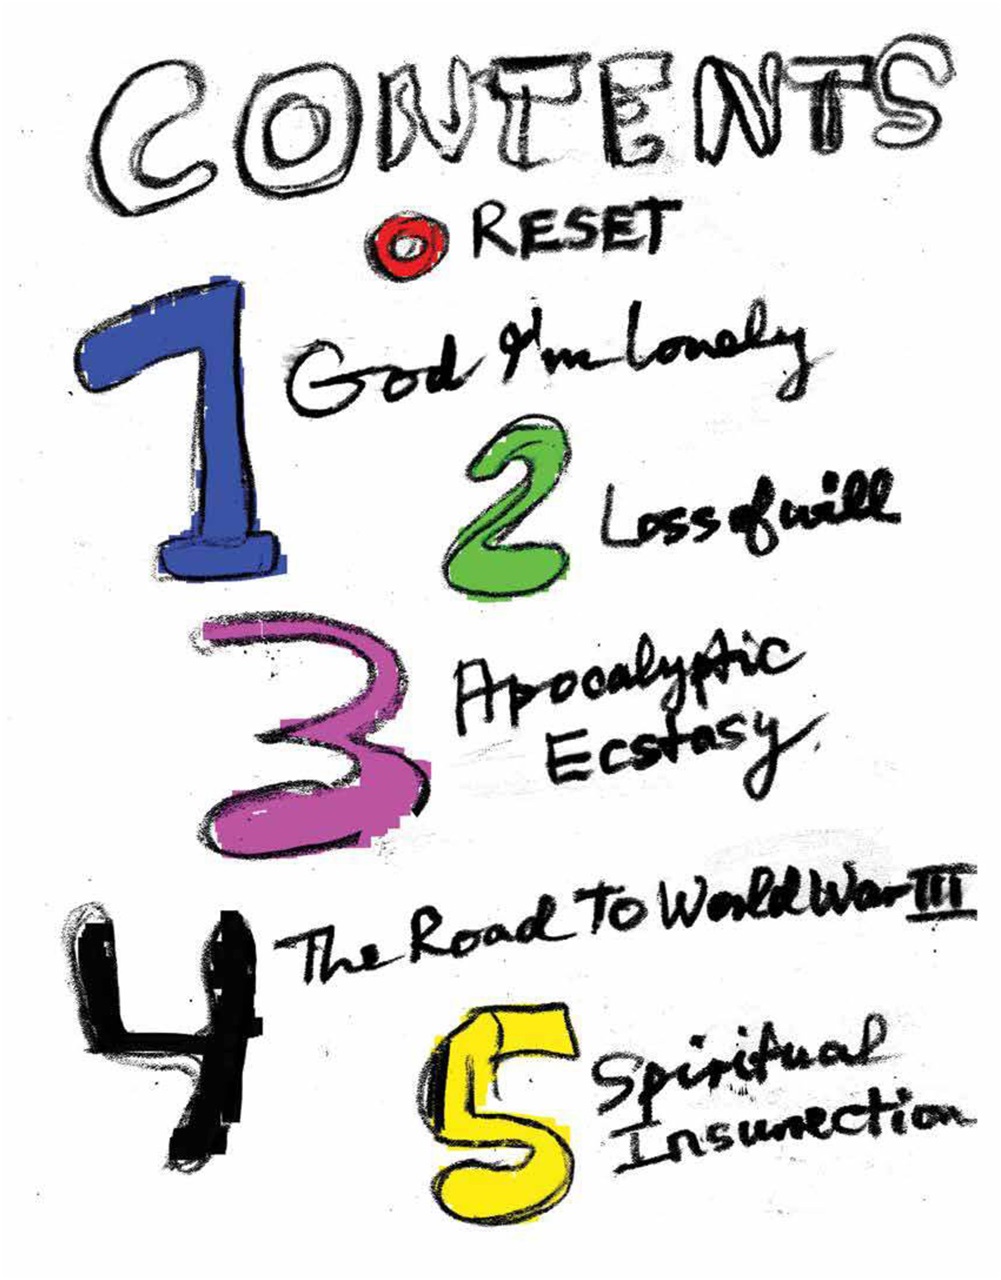 CONTENTS
0 RESET
1 God I'm lonely
2 Loss of will
3 Apocalyptic
Ecstasy.
4 The Road To World War III
5 Spiritual
Insurrection